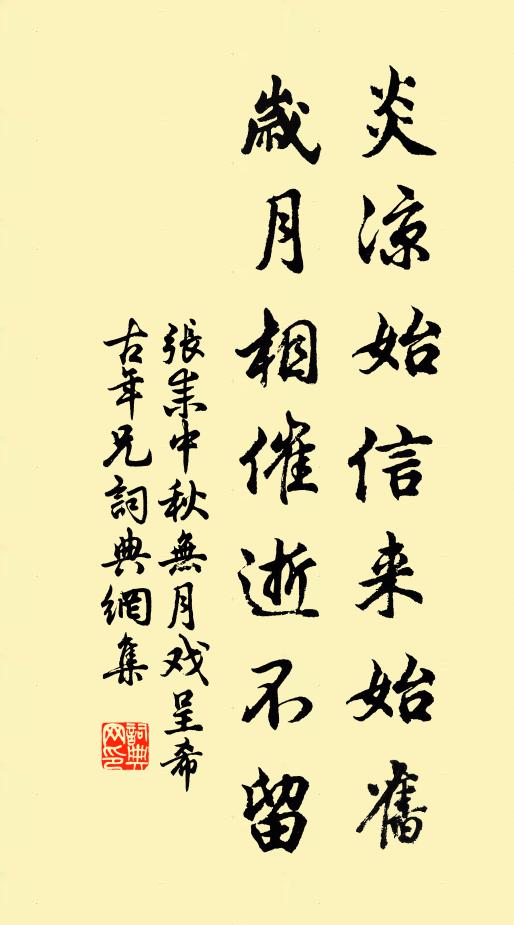 炎涼始信来始舊
歲月相催逝不留
張耒中秋無月戏呈希
古年兄詞典網集
詞典
网印